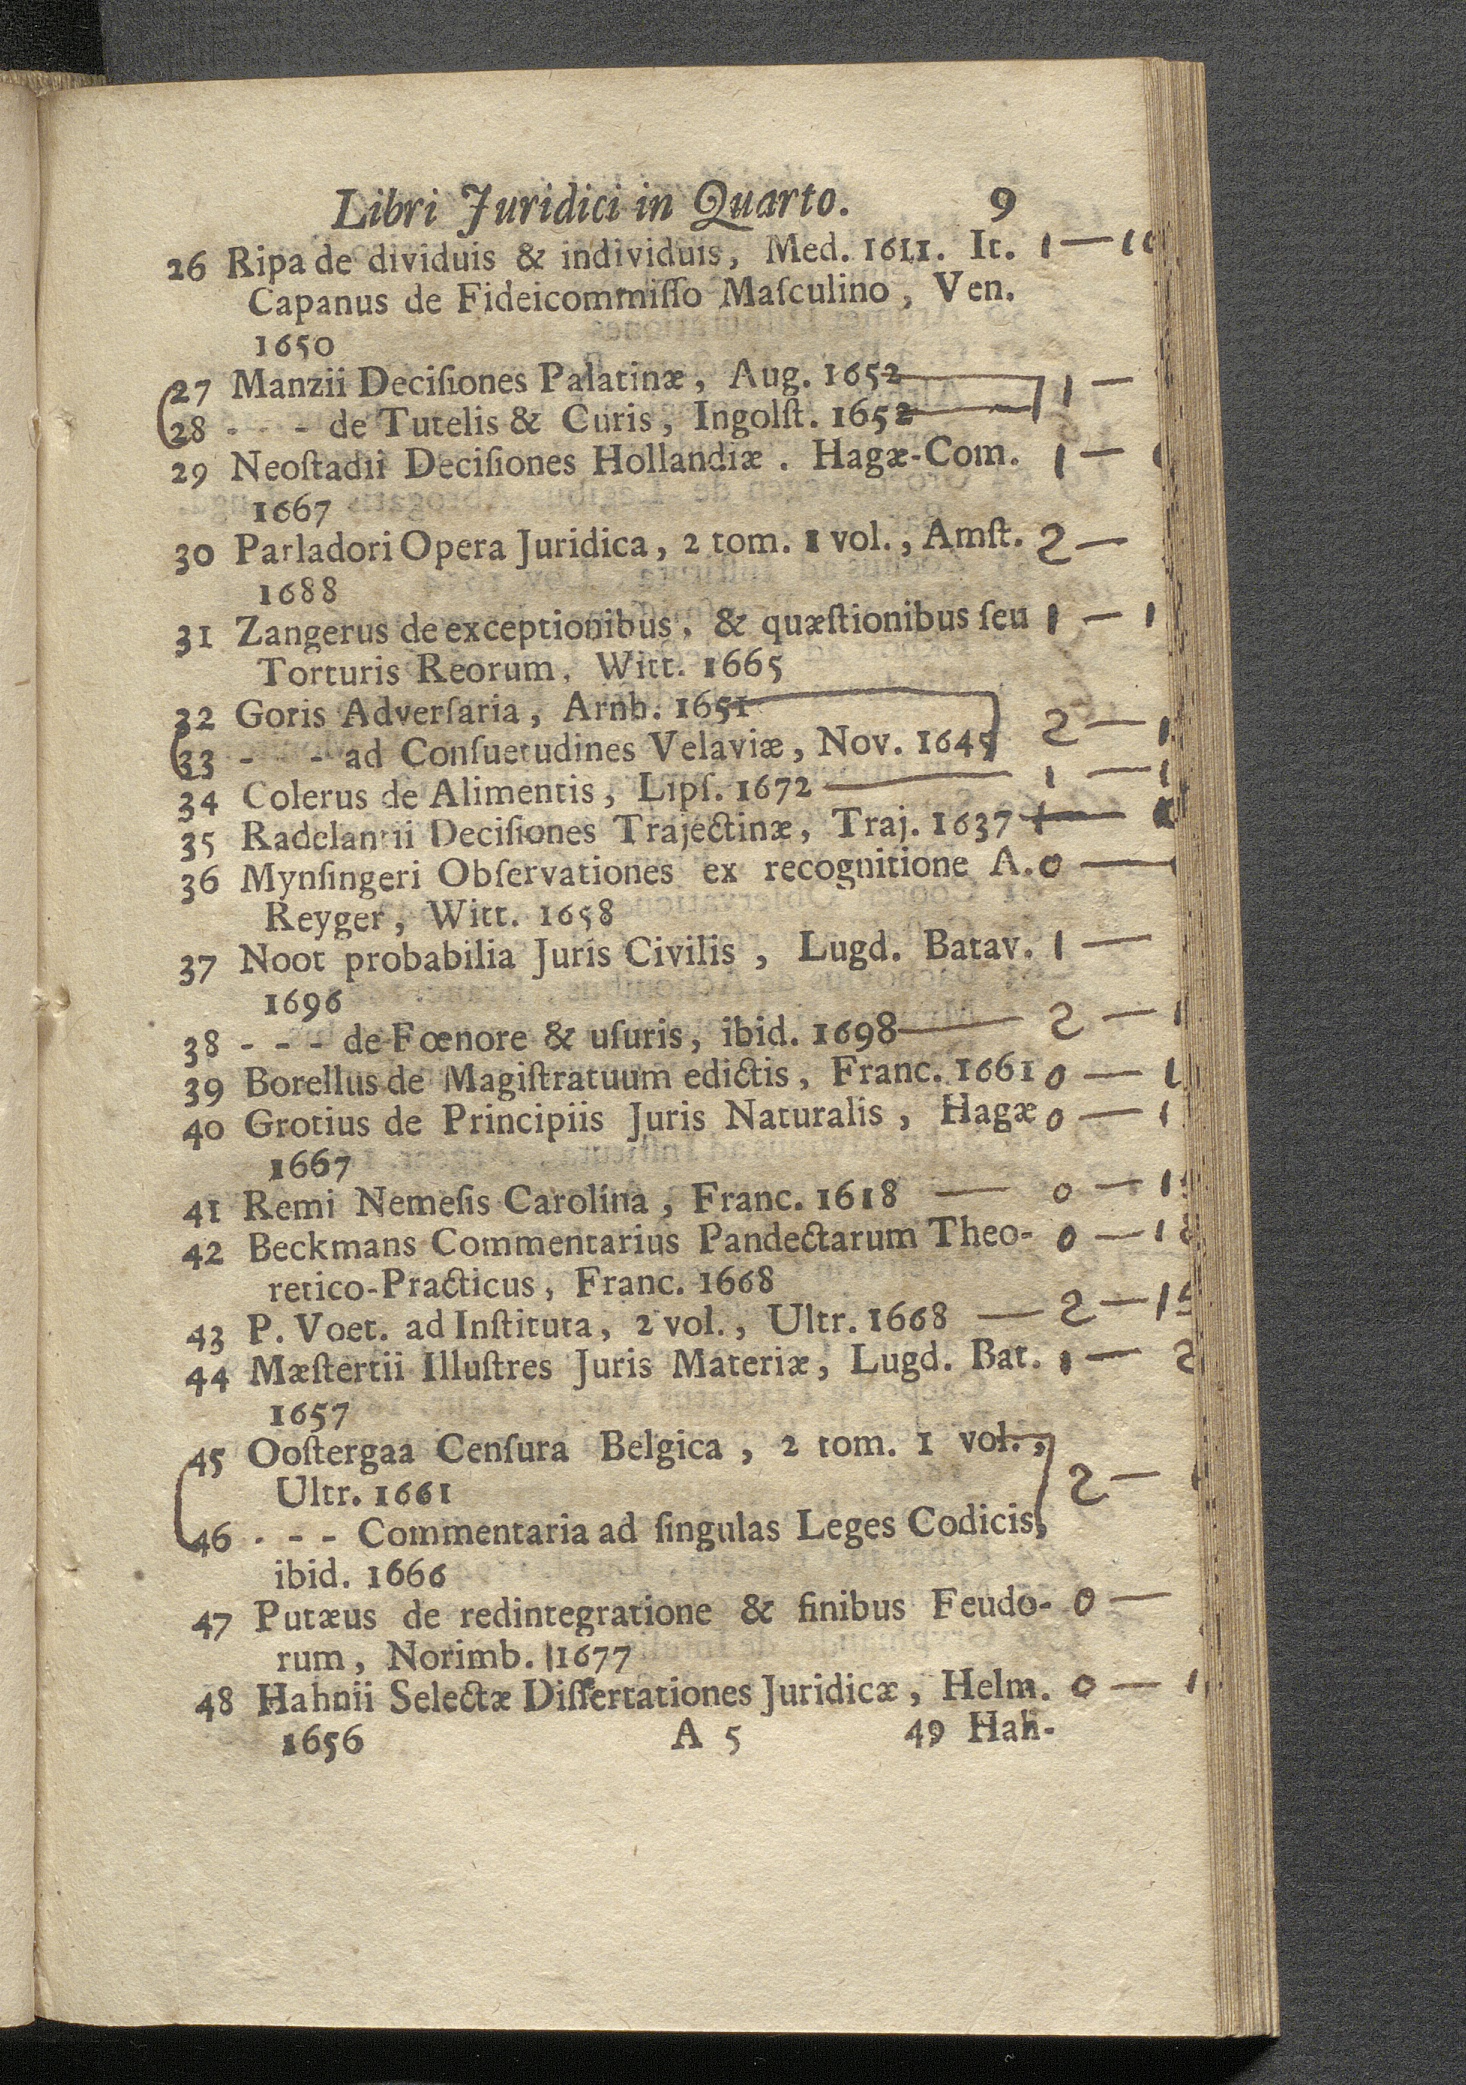 Libri Juridici in Quarto. 9
26 Ripa de dividuis & individuis, Med. 1611. It. 1 —
Capanus de Fideicommiſſo Maſculino, Ven.
1650
27 Manzii Deciſiones Palatinæ, Aug. 1652 1 —
28 - - - de Tutelis & Curis, Ingolſt. 1652
29 Neoſtadii Deciſiones Hollandiæ. Hagæ-Com. 1 —
1667
30 Parladori Opera Juridica, 2 tom. 1 vol., Amſt. 2 —
1688
31 Zangerus de exceptionibus, & quæſtionibus ſeu 1 — 1
Torturis Reorum, Witt. 1665
32 Goris Adverſaria, Arnh. 1651
33 - - - ad Conſuetudines Velaviæ, Nov. 1645 2 — 1
34 Colerus de Alimentis, Lipſ. 1672 — 1 — 1
35 Radelantii Deciſiones Trajectinæ, Traj. 1637 1 —
36 Mynſingeri Obſervationes ex recognitione A. 0 —
Reyger, Witt. 1658
37 Noot probabilia Juris Civilis, Lugd. Batav. 1 —
1696
38 - - - de Fœnore & uſuris, ibid. 1698 — 2 — 1
39 Borellus de Magiſtratuum edictis, Franc. 1661 0 — 1
40 Grotius de Principiis Juris Naturalis, Hagæ 0 — 1
1667
41 Remi Nemeſis Carolina, Franc. 1618 — 0 — 15
42 Beckmans Commentarius Pandectarum Theo- 0 — 18
retico-Practicus, Franc. 1668
43 P. Voet. ad Inſtituta, 2 vol., Ultr. 1668 — 2 — 15
44 Mæſtertii Illuſtres Juris Materiæ, Lugd. Bat. 1 — 2
1657
45 Ooſtergaa Cenſura Belgica, 2 tom. 1 vol.,
Ultr. 1661 2 —
46 - - - Commentaria ad ſingulas Leges Codicis,
ibid. 1666
47 Putæus de redintegratione & finibus Feudo- 0 —
rum, Norimb. 1677
48 Hahnii Selectæ Diſſertationes Juridicæ, Helm. 0 — 1
1656 A 5 49 Hah-